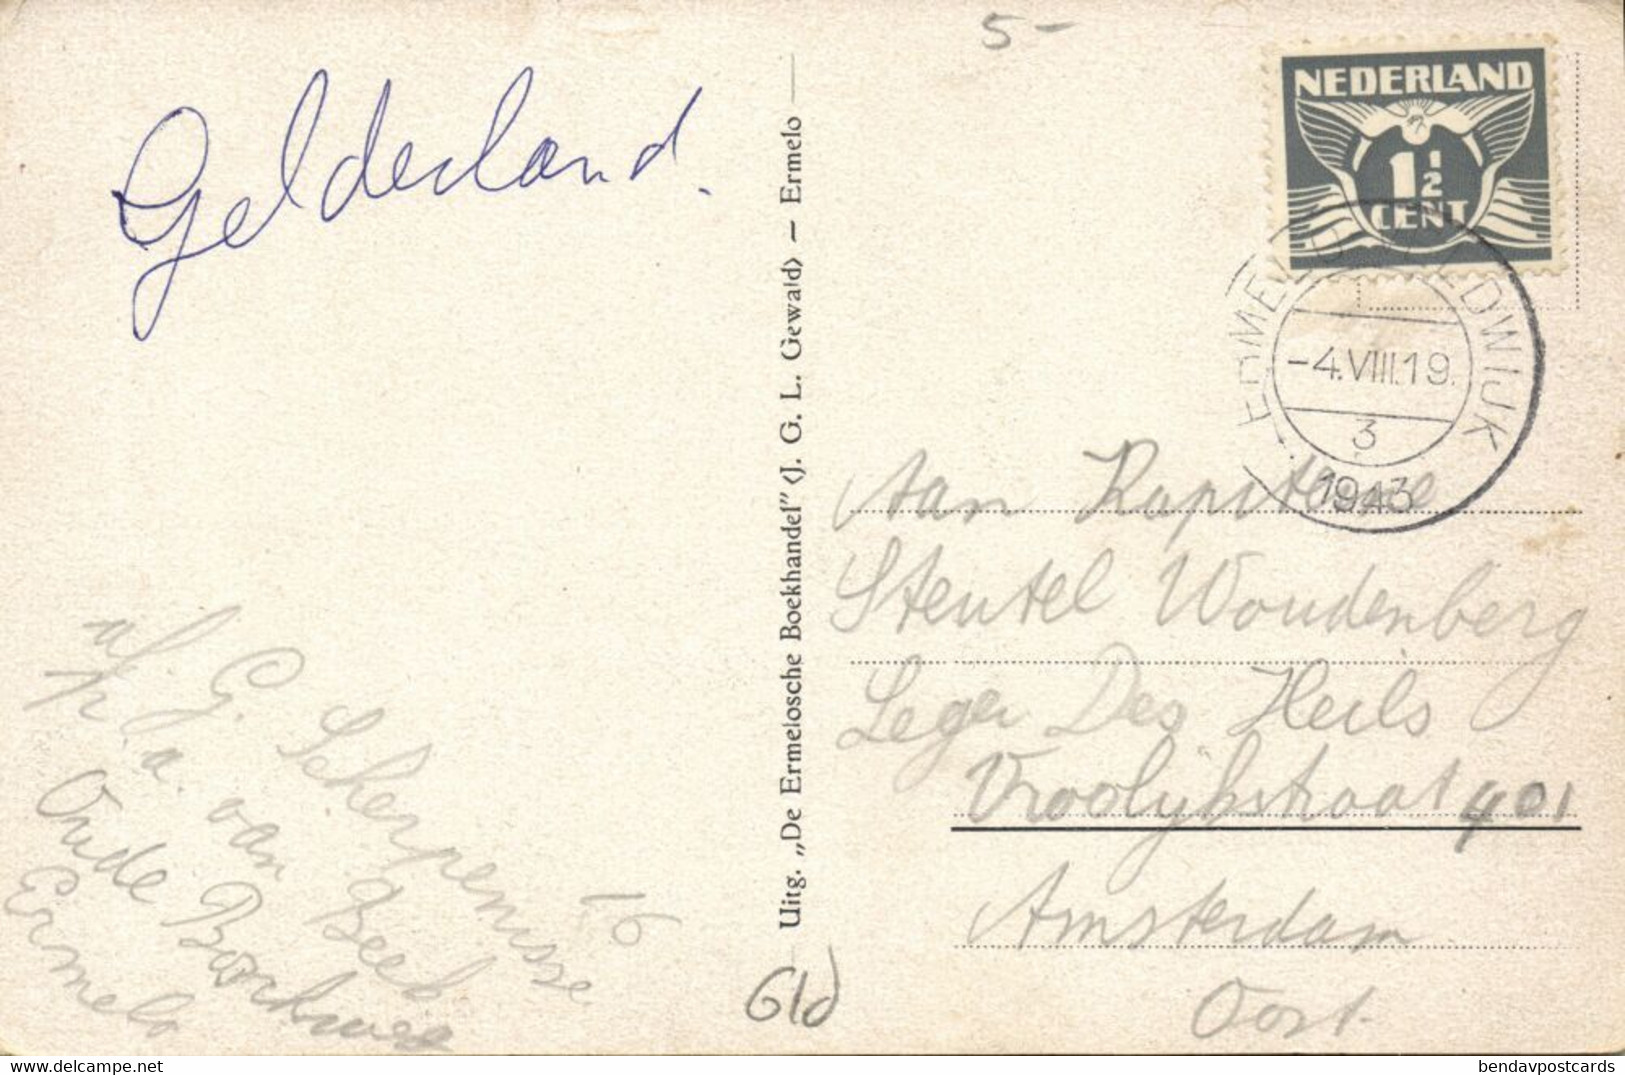 5-
NEDERLAND
1½
CENT
ERMELO NEDWIJK
-4.VIII.19.
3
1943
Gelderland.
Uitg. „De Ermelosche Boekhandel" (J. G. L. Gewald) — Ermelo
Aan Kapiteine
Stentel Woudenberg
Leger Des Heils
Vroolijkstraat 401
Amsterdam
Oost.
af. G. Scherpenisse
p/a. van Beek
Oude 16
Ermelo
Gld
bendavpostcards